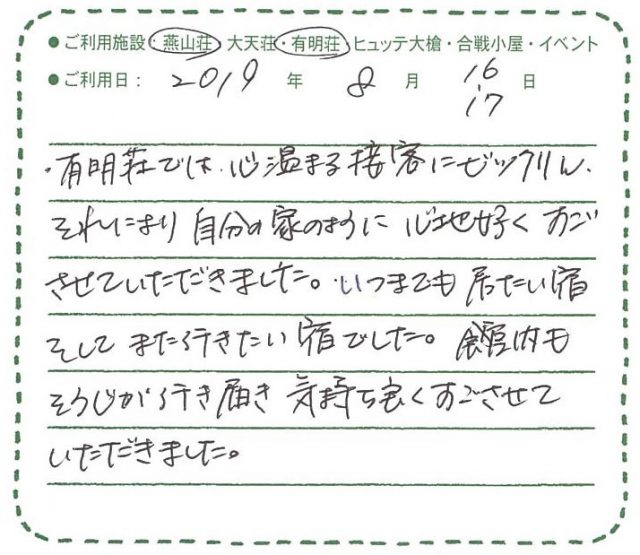 ●ご利用施設・燕山荘・大天荘・有明荘・ヒュッテ大槍・合戦小屋・イベント
●ご利用日：2019年 8月 16 17日
・有明荘では、心温まる接客にビックリん、
それにまり自分の家のように心地好くすご
させていただきました。いつまでも居たい宿
そしてまた行きたい宿でした。館内も
そうじが行き届き気持ち良くすごさせて
いただきました。